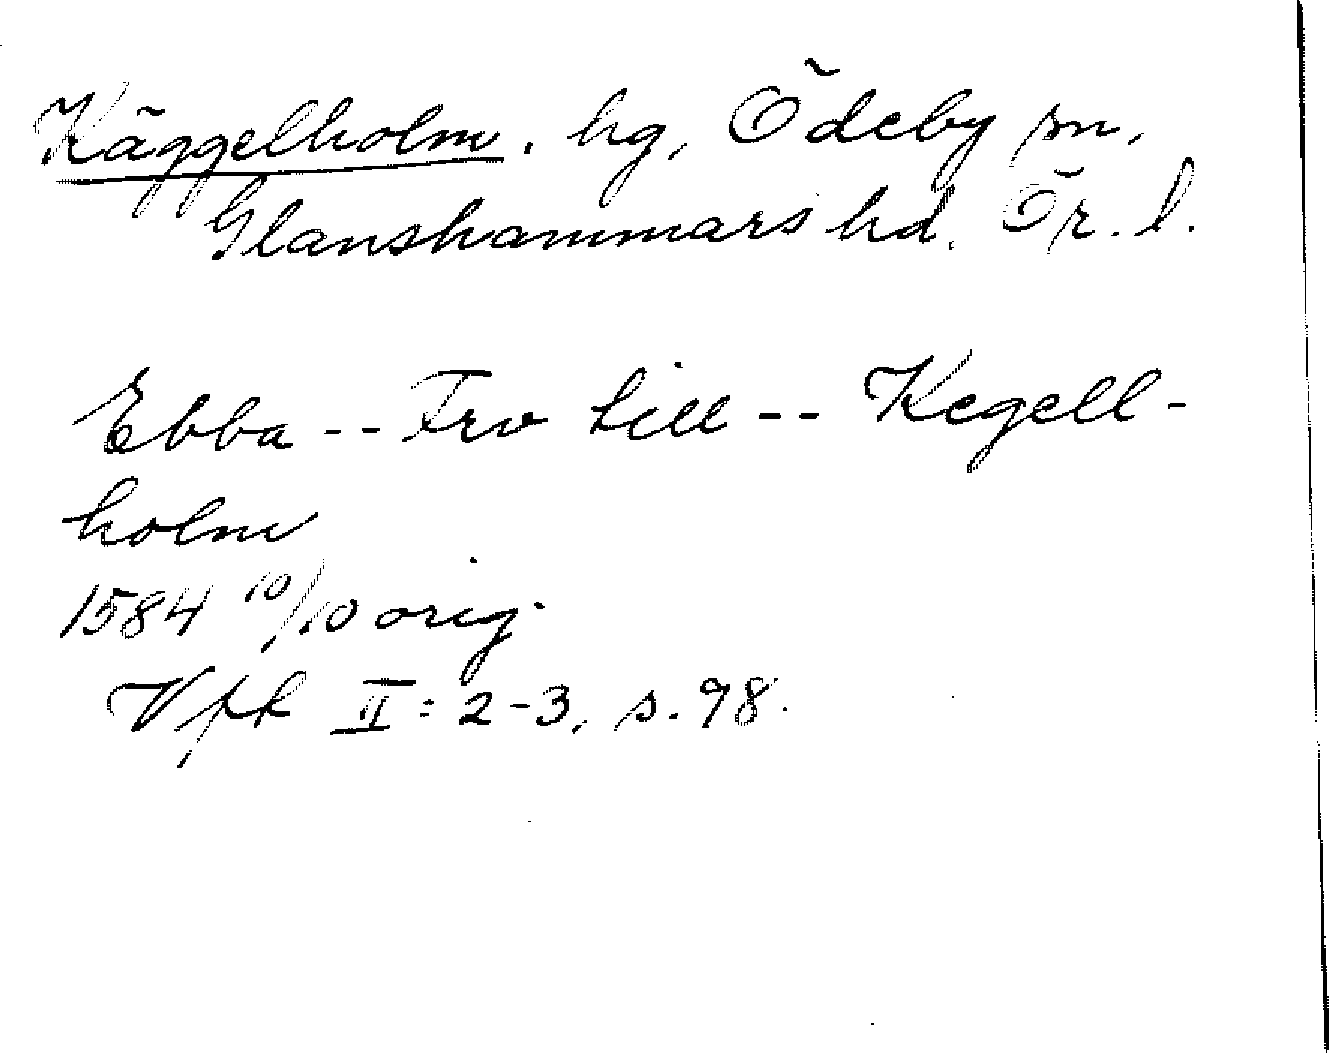 Käggelholm, hg, Ödeby sn,
Glanshammars hd. Ör. l.
Ebba -- Frv till -- Kegell-
holm
1584 10/10 orig.
Vfk II: 2-3, s. 98.